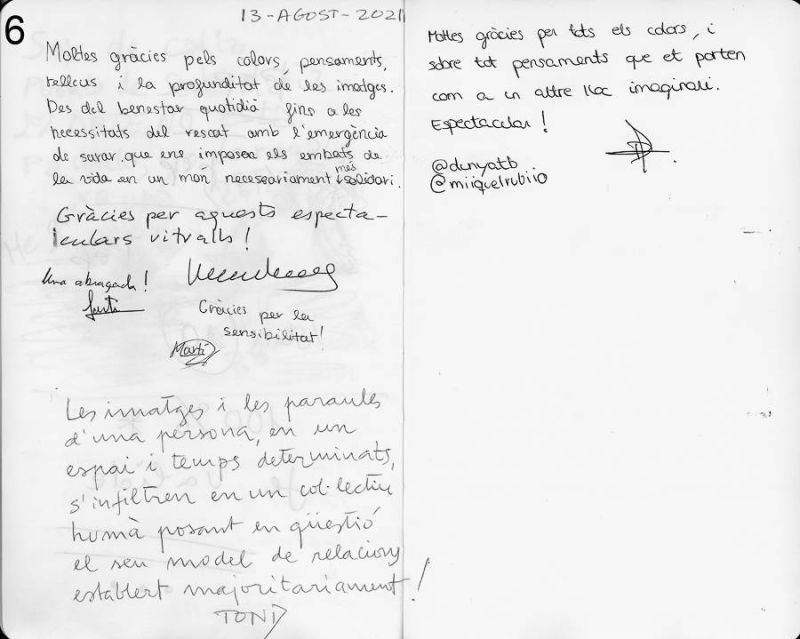 6
13-AGOST-2021
Moltes gràcies pels colors, pensaments,
relleus i la profunditat de les imatges.
Des del benestar quotidià fins a les
necessitats del rescat amb l'emergència
de surar que ens imposen els embats de
la vida en un món necessariament més solidari.
Gràcies per aquests especta-
culars vitralls!
Una abraçada!
Gràcies per la
sensibilitat!
Martí
Les imatges i les paraules
d'una persona, en un
espai i temps determinats,
s'infiltren en un col·lectiu
humà posant en qüestió
el seu model de relacions
establert majoritariament!
TONI
Moltes gràcies per tots els colors, i
sobre tot pensaments que et porten
com a un altre lloc imaginari.
Espectacular!
@dunyatb
@miiquelrubiio